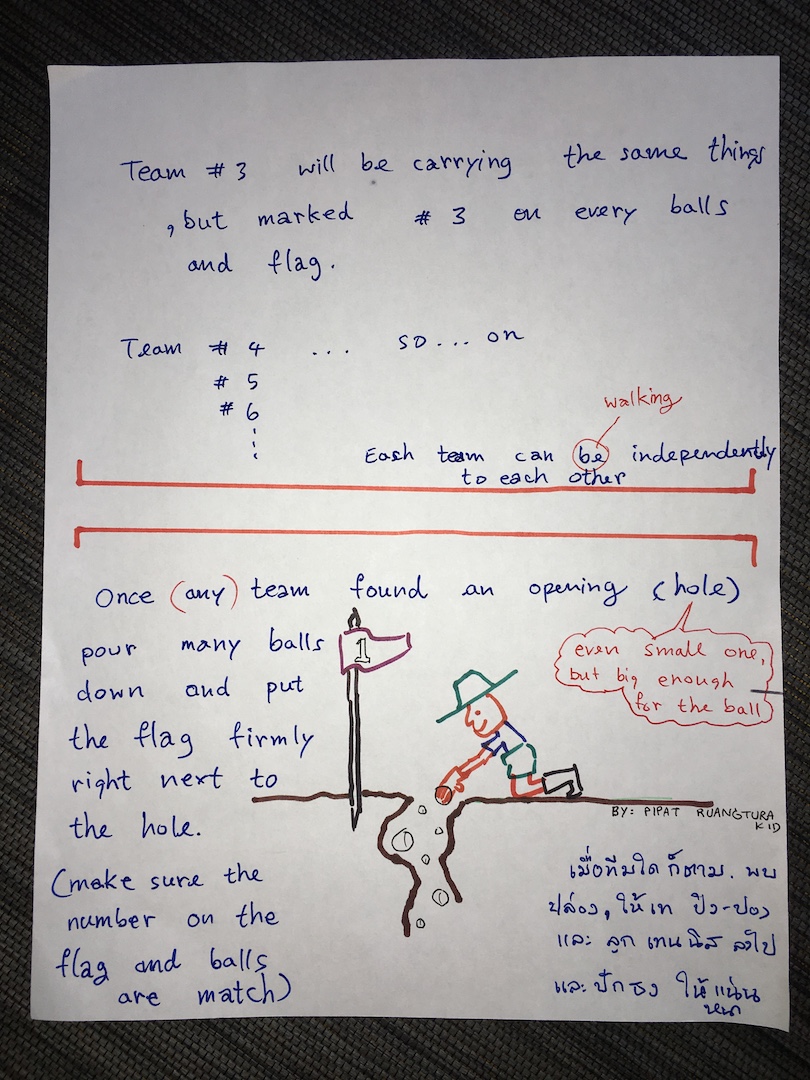 Team # 3 will be carrying the same things
, but marked # 3 on every balls
and flag.
Team # 4 ... so... on
# 5
# 6
walking
Each team can be independently
to each other
Once (any) team found an opening (hole)
pour many balls
down and put
the flag firmly
right next to
the hole.
(make sure the
number on the
flag and balls
are match)
1
even small one,
but big enough
for the ball
BY: PIPAT RUANGTURA
KID
เมื่อทีมใด ก็ตาม. พบ
ปล่อง, ให้เท ปิง-ปอง
และ ลูก เทนนิส ลงไป
และปักธง ให้แน่น
หนา